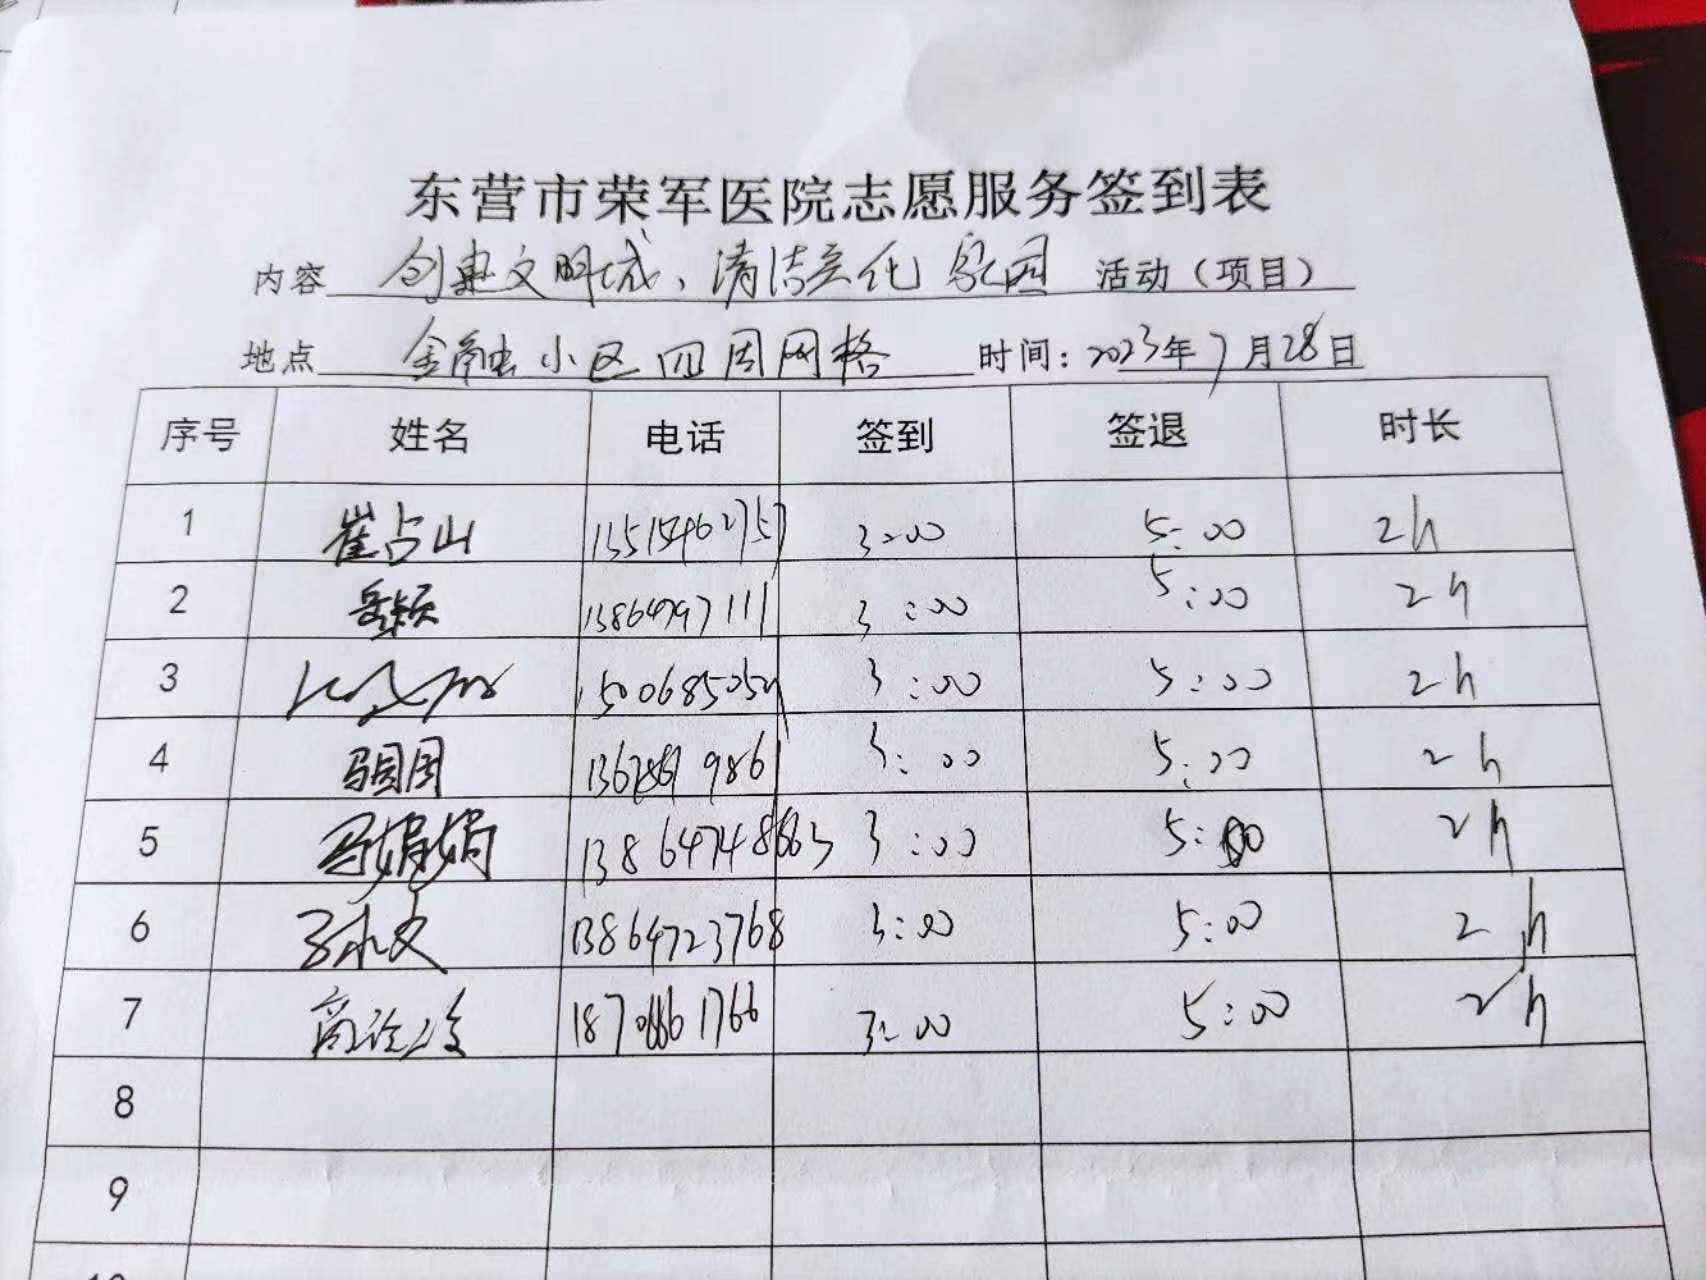 东营市荣军医院志愿服务签到表
内容 创建文明城、清洁亮化家园 活动（项目）
地点 金融小区四周网格 时间：2023年7月28日
序号 姓名 电话 签到 签退 时长
1 崔占山 13515462757 3:00 5:00 2h
2 13864797111 3:00 5:00 2h
3 3:00 5:00 2h
4 3:00 5:00 2h
5 马娟娟 3:00 5:00 2h
6 13864723768 3:00 5:00 2h
7 3:00 5:00 2h
8
9
10